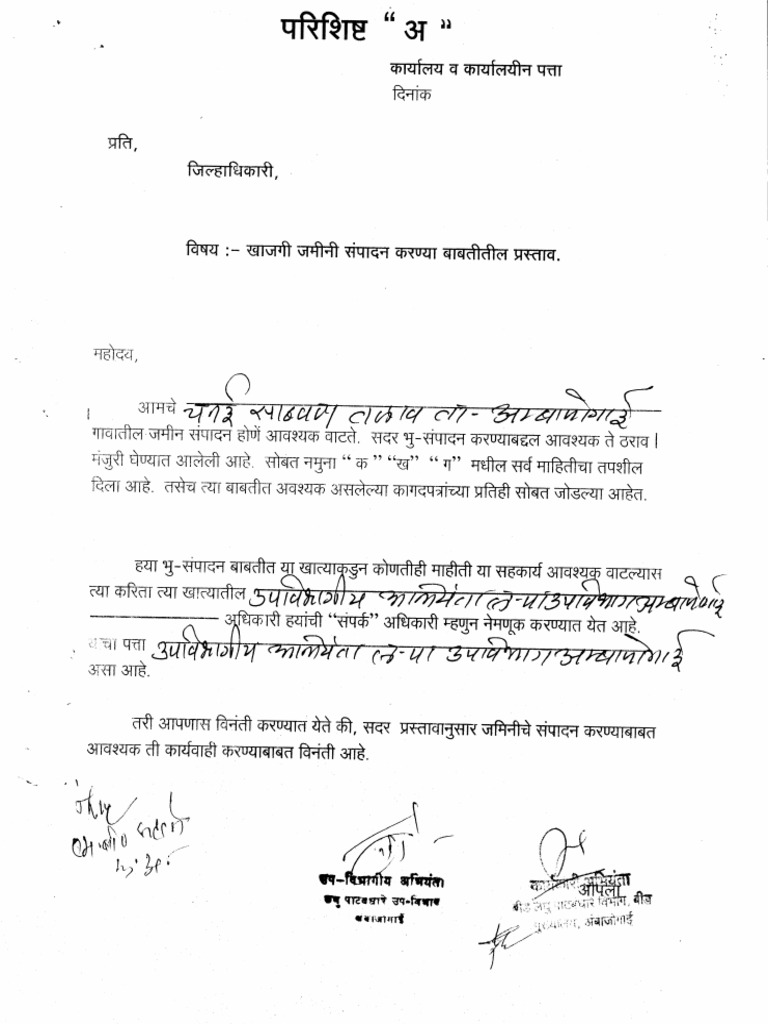 परिशिष्ट “ अ ”
कार्यालय व कार्यालयीन पत्ता
दिनांक
प्रति,
जिल्हाधिकारी,
विषय :- खाजगी जमीनी संपादन करण्या बाबतीतील प्रस्ताव.
महोदव,
आमचे चनई साठवण तलाव ता- अम्बाजोगाई
गावातील जमीन संपादन होणें आवश्यक वाटते. सदर भु-संपादन करण्याबद्दल आवश्यक ते ठराव |
मंजुरी घेण्यात आलेली आहे. सोबत नमुना “ क ” “ख” “ ग” मधील सर्व माहितीचा तपशील
दिला आहे. तसेच त्या बाबतीत अवश्यक असलेल्या कागदपत्रांच्या प्रतिही सोबत जोडल्या आहेत.
हया भु-संपादन बाबतीत या खात्याकडुन कोणतीही माहीती या सहकार्य आवश्यक वाटल्यास
त्या करिता त्या खात्यातील उपविभागीय अभियंता ल-पा उपविभाग अम्बाजोगाई
अधिकारी हयांची “संपर्क” अधिकारी म्हणुन नेमणूक करण्यात येत आहे.
यांचा पत्ता उपविभागीय अभियंता ल-पा उपविभाग अम्बाजोगाई
असा आहे.
तरी आपणास विनंती करण्यात येते की, सदर प्रस्तावानुसार जमिनीचे संपादन करण्याबाबत
आवश्यक ती कार्यवाही करण्याबाबत विनंती आहे.
उप-विभागीय अभियंता
लघु पाटबंधारे उप-विभाग
अंबाजोगाई
कार्यकारी अभियंता
आपला
बीड लघु पाटबंधारे विभाग, बीड
मुख्यालय, अंबाजोगाई